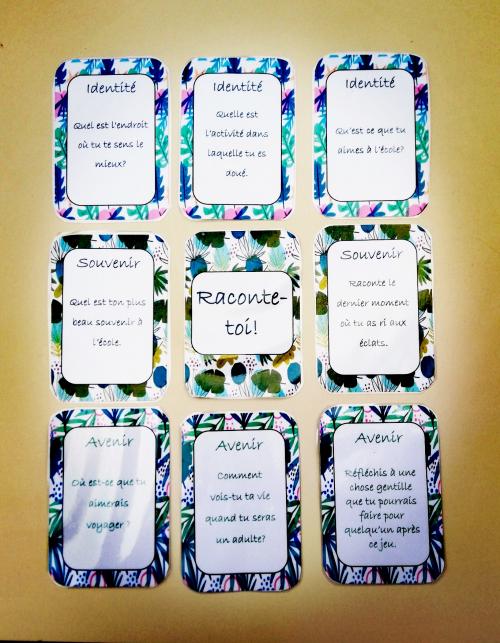 Identité
Quel est l'endroit
où tu te sens le
mieux?
Identité
Quelle est
l'activité dans
laquelle tu es
doué.
Identité
Qu'est ce que tu
aimes à l'école?
Souvenir
Quel est ton plus
beau souvenir à
l'école.
Raconte-
toi!
Souvenir
Raconte le
dernier moment
où tu as ri aux
éclats.
Avenir
Où est-ce que tu
aimerais
voyager?
Avenir
Comment
vois-tu ta vie
quand tu seras
un adulte?
Avenir
Réfléchis à une
chose gentille
que tu pourrais
faire pour
quelqu'un après
ce jeu.